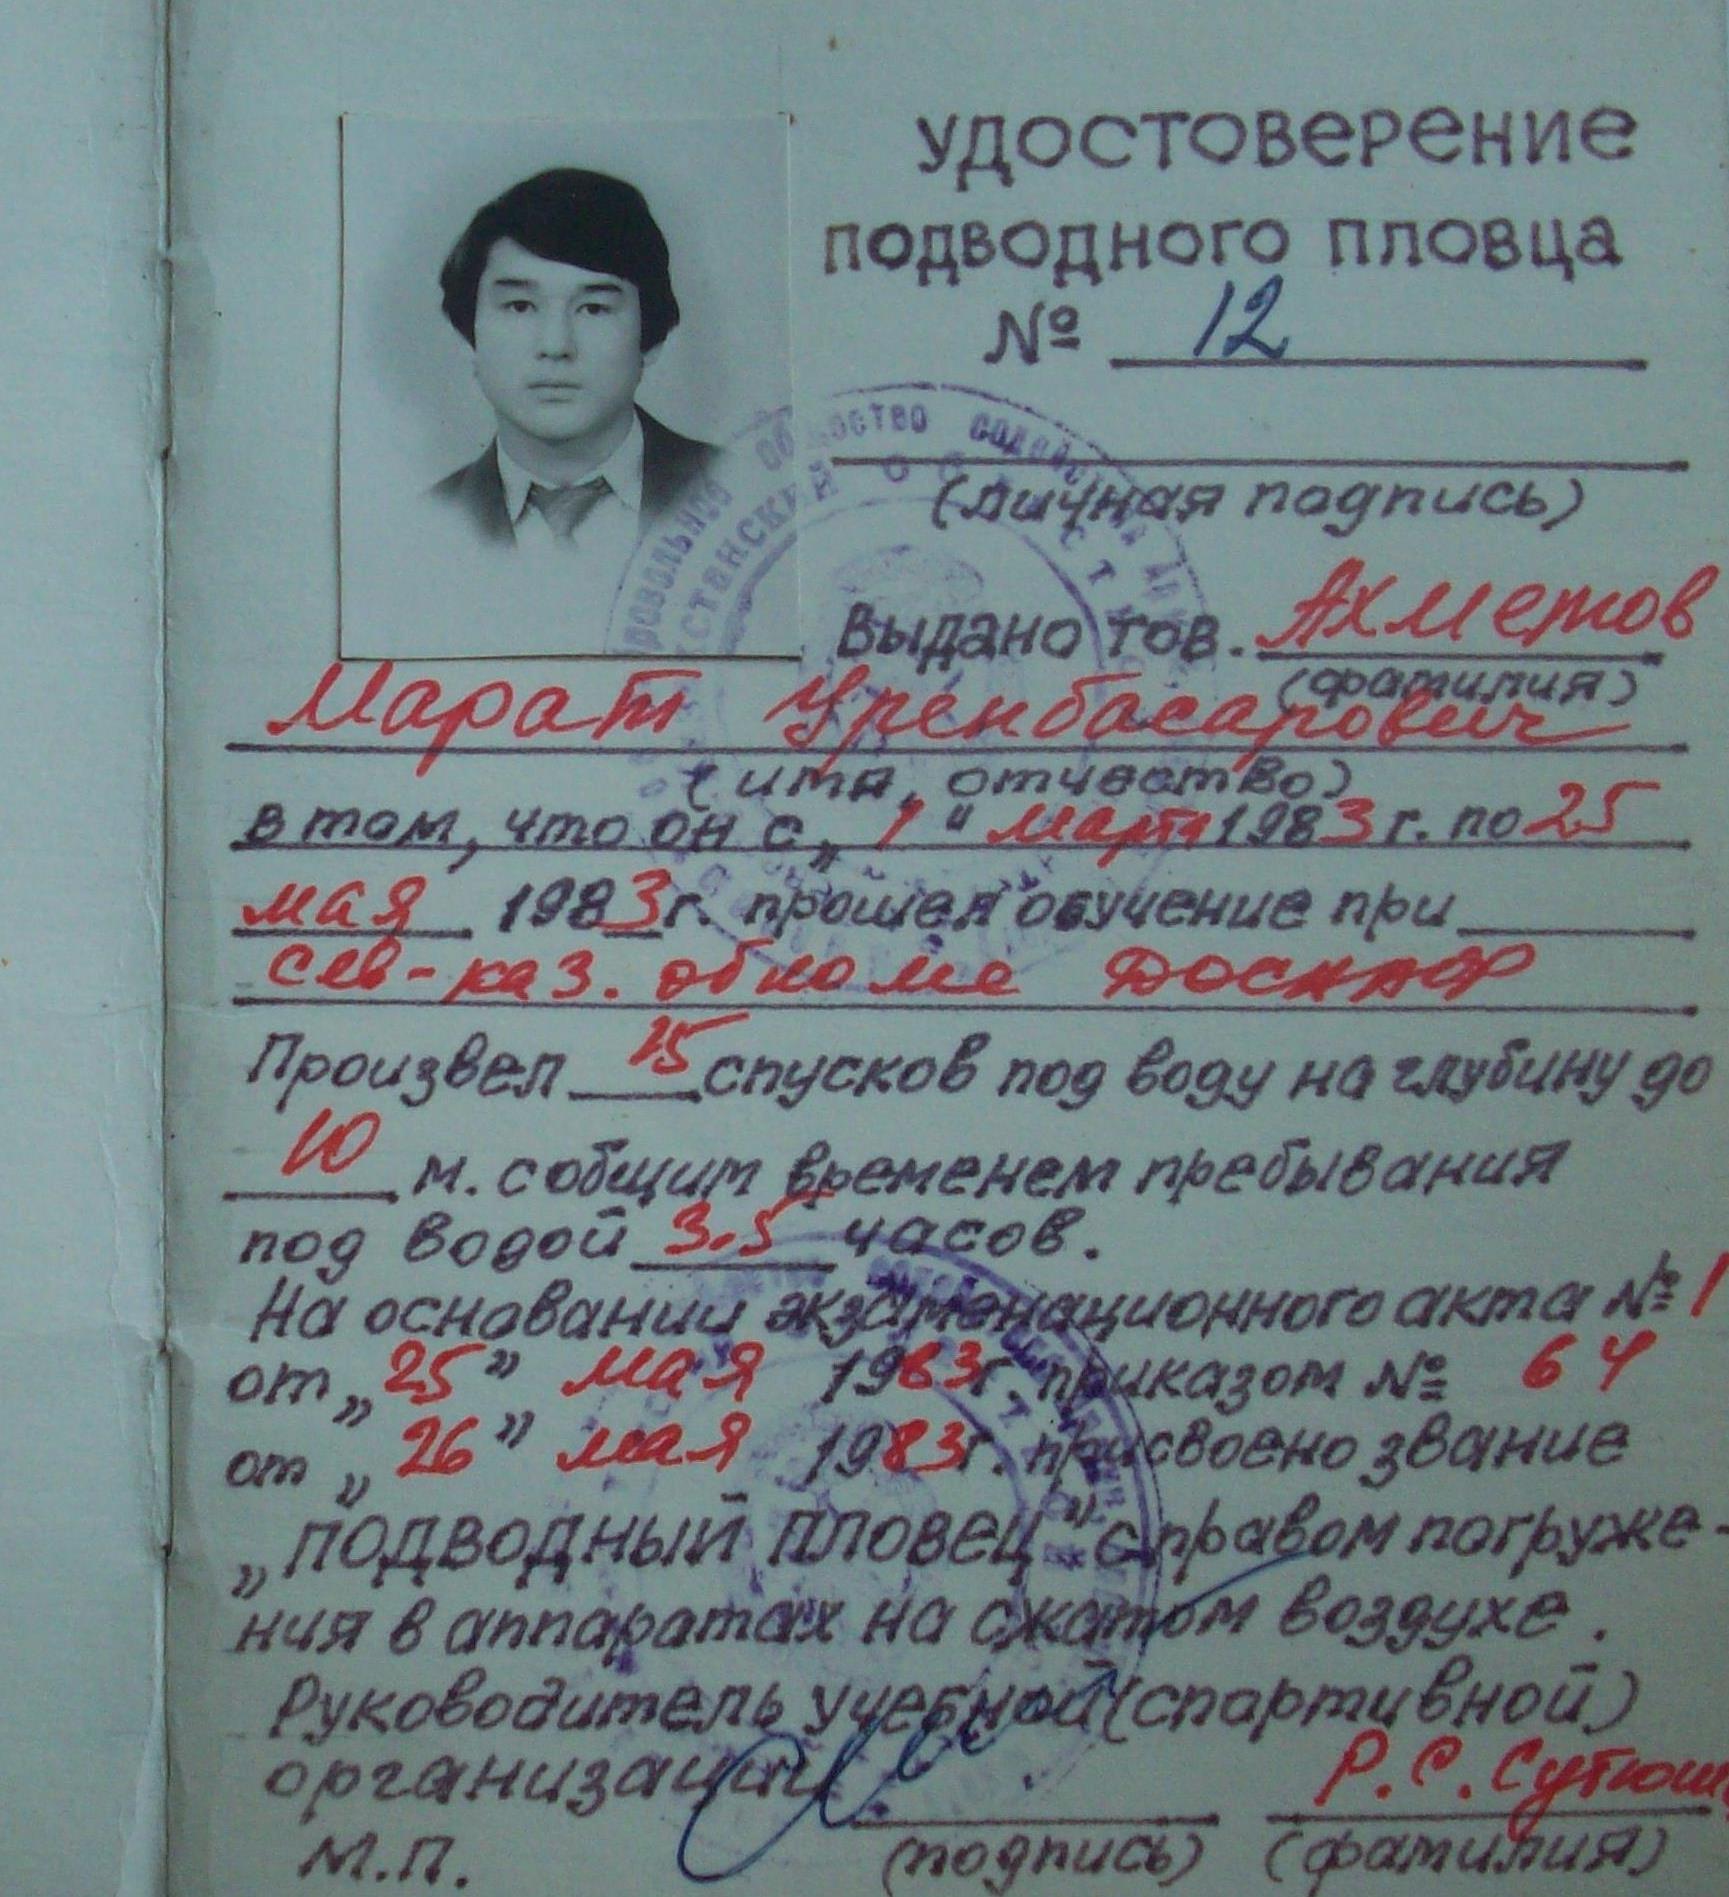 УДОСТОВЕРЕНИЕ
ПОДВОДНОГО ПЛОВЦА
№ 12
(личная подпись)
Выдано тов. Ахметов
(фамилия)
Марат Уренбасарович
(имя, отчество)
в том, что он с „1" марта 1983 г. по 25
мая 1983 г. прошел обучение при
Сев-каз. обкоме ДОСААФ
Произвел 15 спусков под воду на глубину до
10 м. с общим временем пребывания
под водой 3.5 часов.
На основании экзаменационного акта № 1
от „25" мая 1983 г. приказом № 64
от „26" мая 1983 г. присвоено звание
„ПОДВОДНЫЙ ПЛОВЕЦ" с правом погруже-
ния в аппаратах на сжатом воздухе.
Руководитель учебной (спортивной)
организации Р.С.
(подпись) (фамилия)
М.П.